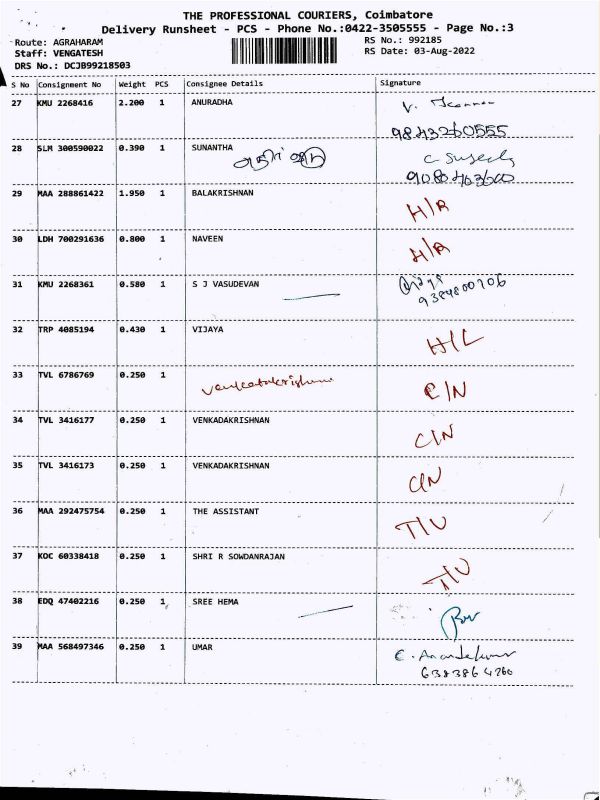 THE PROFESSIONAL COURIERS, Coimbatore
Delivery Runsheet - PCS - Phone No.:0422-3505555 - Page No.:3
Route: AGRAHARAM RS No.: 992185
Staff: VENGATESH RS Date: 03-Aug-2022
DRS No.: DCJB99218503
S No Consignment No Weight PCS Consignee Details Signature
27 KMU 2268416 2.200 1 ANURADHA
9843260555
28 SLM 300590022 0.390 1 SUNANTHA
29 MAA 288861422 1.950 1 BALAKRISHNAN H/R
30 LDH 700291636 0.800 1 NAVEEN H/R
31 KMU 2268361 0.580 1 S J VASUDEVAN
9384800706
32 TRP 4085194 0.430 1 VIJAYA H/L
33 TVL 6786769 0.250 1 Venkatakrishnan C/N
34 TVL 3416177 0.250 1 VENKADAKRISHNAN C/N
35 TVL 3416173 0.250 1 VENKADAKRISHNAN C/N
36 MAA 292475754 0.250 1 THE ASSISTANT T/U
37 KOC 60338418 0.250 1 SHRI R SOWDANRAJAN T/U
38 EDQ 47402216 0.250 1 SREE HEMA
39 MAA 568497346 0.250 1 UMAR